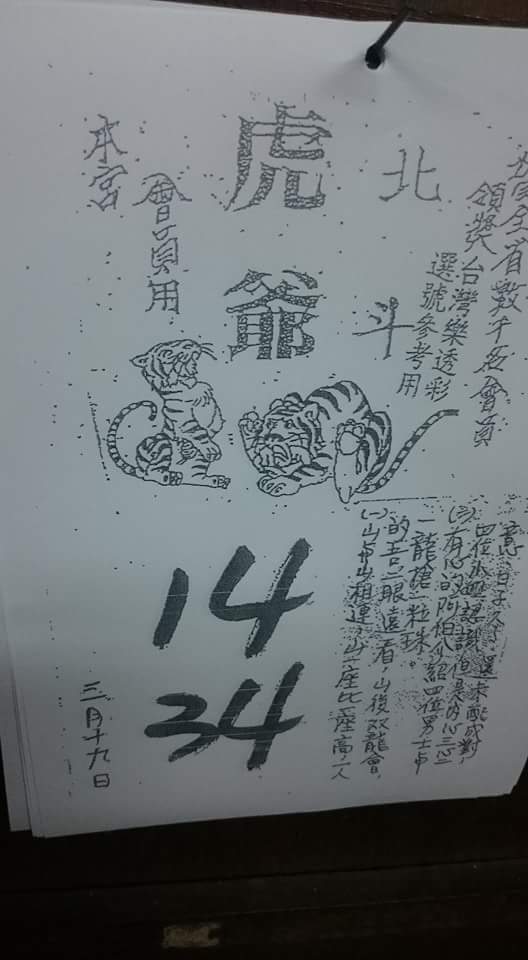 全省數千名會員
領獎
台灣樂透彩
選號參考用
北斗
虎爺
會員用
本宮
(一)山与山相連,山一座比一座高,二人
的 二眼遠看,山後双龍會,
一龍搶一粒珠。
有心的阿伯介紹四位男士与
四位小姐認識,但是內心三心二
意,日子久了,還未配成對,
14
34
三月十九日